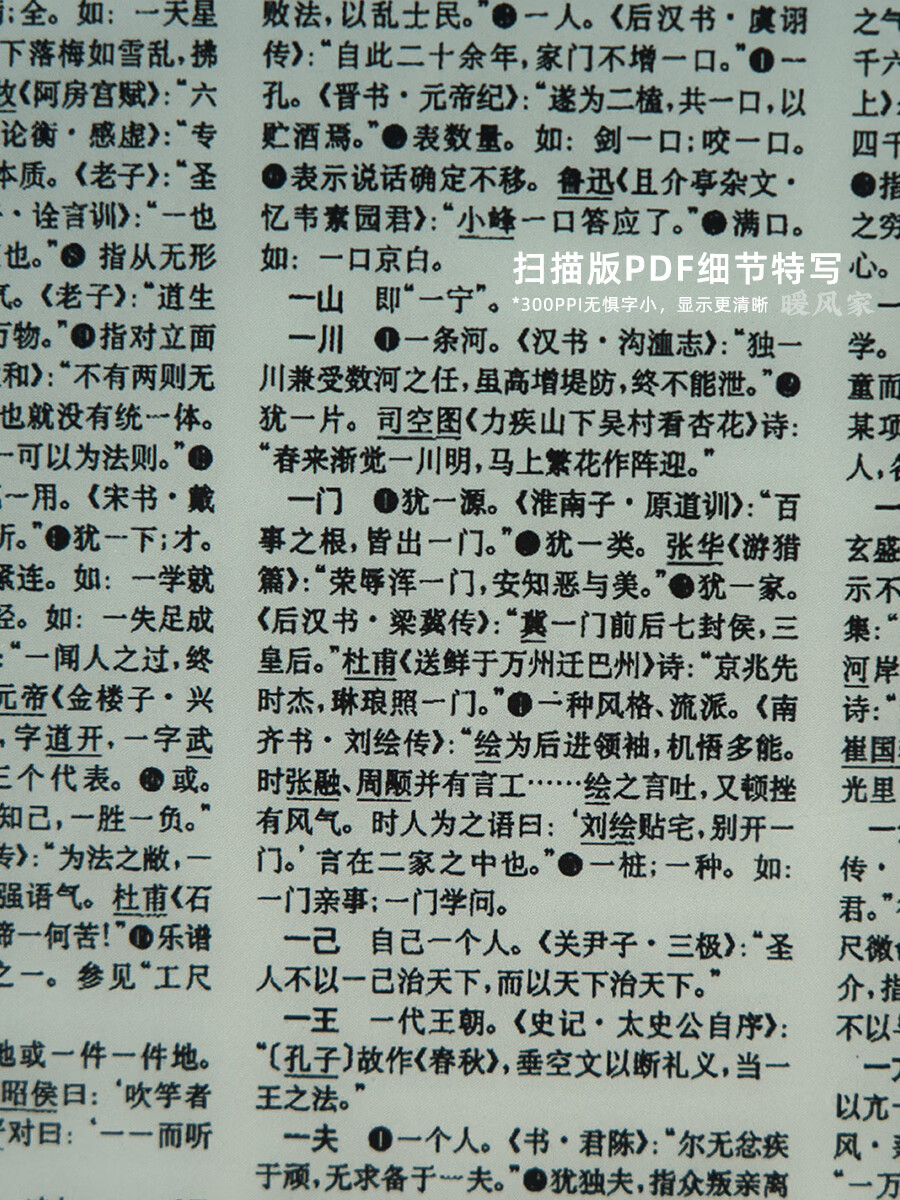 ;全。如：一天星
下落梅如雪乱，拂
《阿房宫赋》：“六
论衡·感虚》：“专
本质。《老子》：“圣
·诠言训》：“一也
也。”指从无形
气。《老子》：“道生
万物。”指对立面
和》：“不有两则无
也就没有统一体。
一可以为法则。”
一用。《宋书·戴
犹一下；才。
紧连。如：一学就
径。如：一失足成
：“一闻人之过，终
元帝《金楼子·兴
，字道开，一字武
三个代表。或。
知己，一胜一负。”
传》：“为法之敝，一
强语气。杜甫《石
啼一何苦！”乐谱
之一。参见“工尺
地或一件一件地。
昭侯曰：‘吹竽者
对曰：‘一一而听
败法，以乱士民。”一人。《后汉书·虞诩
传》：“自此二十余年，家门不增一口。”一
孔。《晋书·元帝纪》：“遂为二榼，共一口，以
贮酒焉。”表数量。如：剑一口；咬一口。
表示说话确定不移。鲁迅《且介亭杂文·
忆韦素园君》：“小峰一口答应了。”满口。
如：一口京白。
扫描版PDF细节特写
*300PPI无惧字小，显示更清晰 暖风家
一山 即“一宁”。
一川 ❶一条河。《汉书·沟洫志》：“独一
川兼受数河之任，虽高增堤防，终不能泄。”❷
犹一片。司空图《力疾山下吴村看杏花》诗：
“春来渐觉一川明，马上繁花作阵迎。”
一门 ❶犹一源。《淮南子·原道训》：“百
事之根，皆出一门。”❷犹一类。张华《游猎
篇》：“荣辱浑一门，安知恶与美。”❸犹一家。
《后汉书·梁冀传》：“冀一门前后七封侯，三
皇后。”杜甫《送鲜于万州迁巴州》诗：“京兆先
时杰，琳琅照一门。”❹一种风格、流派。《南
齐书·刘绘传》：“绘为后进领袖，机悟多能。
时张融、周颙并有言工……绘之言吐，又顿挫
有风气。时人为之语曰：‘刘绘贴宅，别开一
门。’言在二家之中也。”❺一桩；一种。如：
一门亲事；一门学问。
一己 自己一个人。《关尹子·三极》：“圣
人不以一己治天下，而以天下治天下。”
一王 一代王朝。《史记·太史公自序》：
“〔孔子〕故作《春秋》，垂空文以断礼义，当一
王之法。”
一夫 ❶一个人。《书·君陈》：“尔无忿疾
于顽，无求备于一夫。”❷犹独夫，指众叛亲离
之气
千六
上》
四千
指
之穷
心。
一
学。
童而
某项
人，各
一
玄盛
示不
集：“
河岸
诗：“
崔国
光里
一
传·
君。”
尺微
介，指
不以
一
以亢
风·
“一万